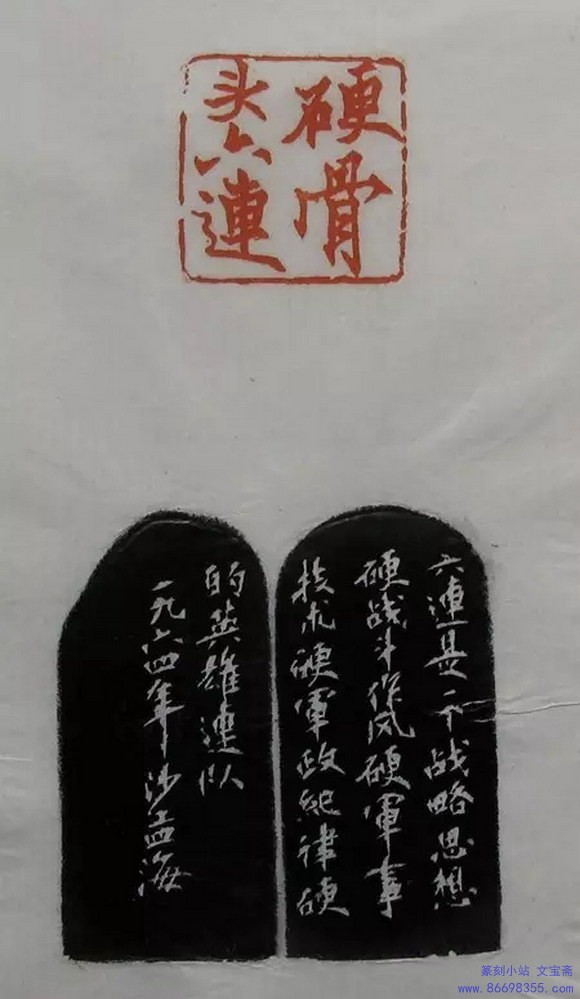 硬骨
头六連
六連是一个战略思想
硬战斗作风硬軍事
技术硬軍政纪律硬
的英雄連队
一九六四年沙孟海
篆刻小站 文宝斋
www.86698355.com